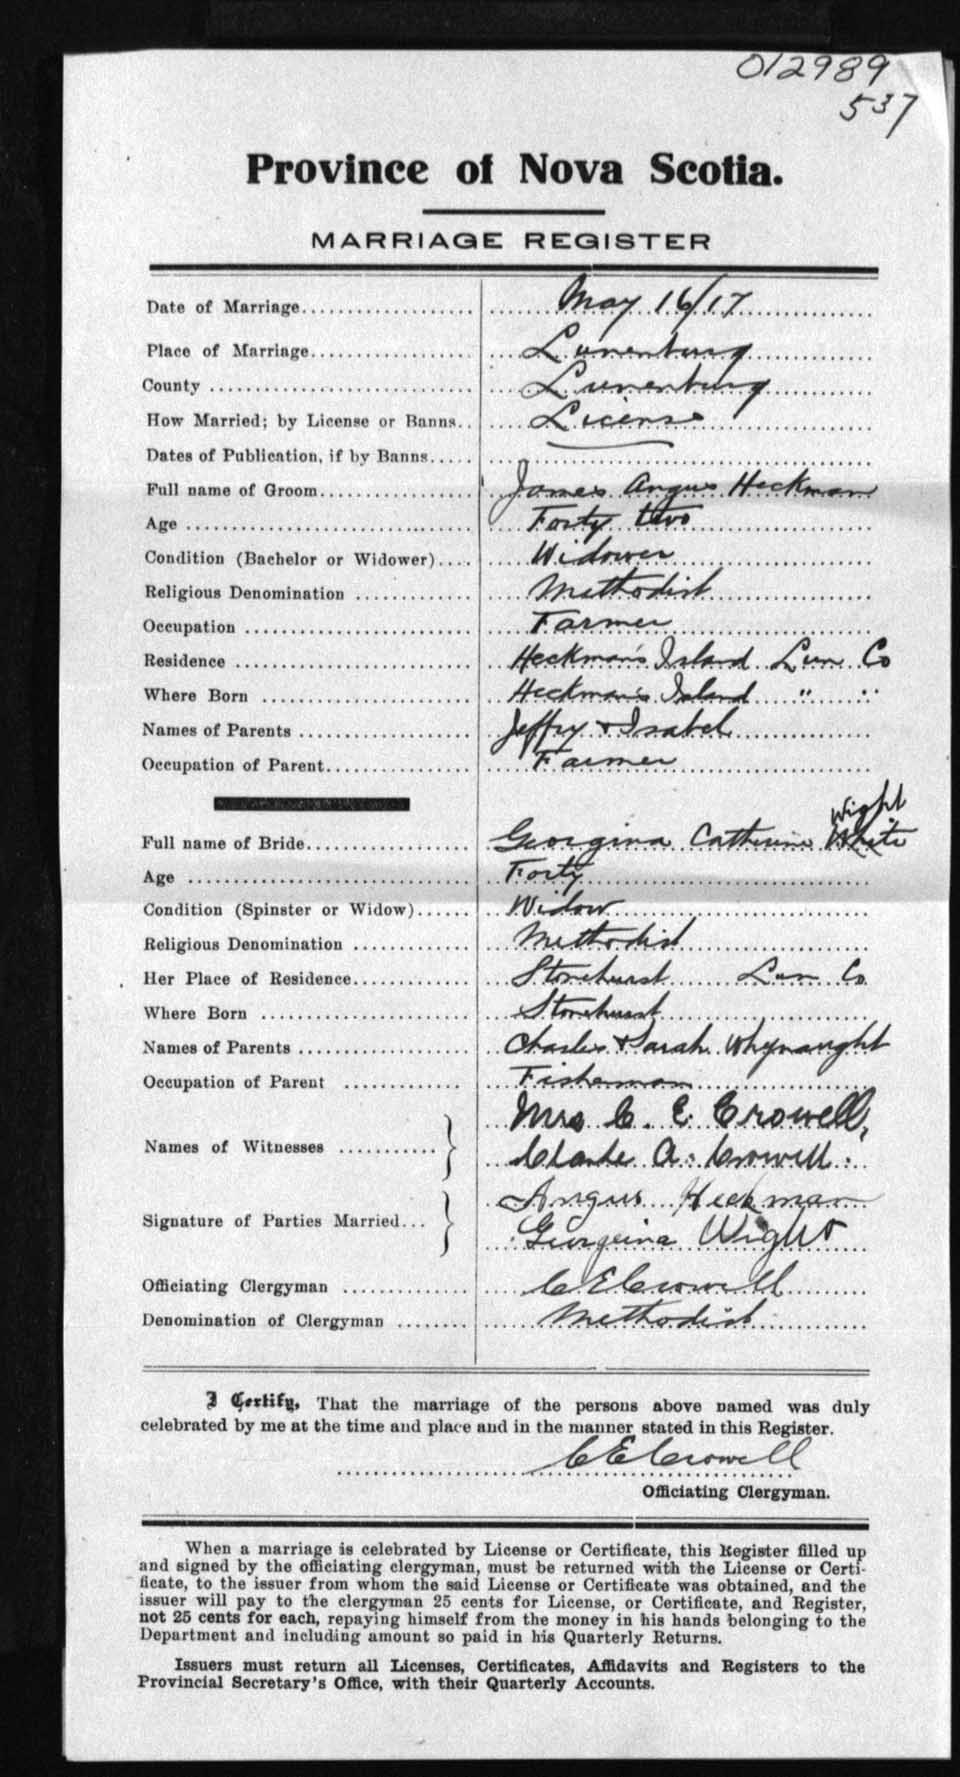 012989
537
Province of Nova Scotia.
MARRIAGE REGISTER
Date of Marriage.................... May 16/17
Place of Marriage.................. Lunenburg
County ............................ Lunenburg
How Married; by License or Banns.. License
Dates of Publication, if by Banns.....
Full name of Groom................. James Angus Heckman
Age ............................ Forty two
Condition (Bachelor or Widower).... Widower
Religious Denomination ............ Methodist
Occupation ........................ Farmer
Residence ......................... Heckman's Island Lun Co
Where Born ....................... Heckman's Island " "
Names of Parents .................. Jeffry & Isabel
Occupation of Parent................ Farmer
Wight
Full name of Bride.................. Georgina Catherine White
Age ............................... Forty
Condition (Spinster or Widow)...... Widow
Religious Denomination ............ Methodist
Her Place of Residence............. Stonehurst Lun Co
Where Born ...................... Stonehurst
Names of Parents .................. Charles & Sarah Whynaught
Occupation of Parent ............. Fisherman
Mrs C. E. Crowell,
Names of Witnesses ........... } Clarke A. Crowell.
Angus Heckman
Signature of Parties Married... } Georgeina Wight
Officiating Clergyman .............. C E Crowell
Denomination of Clergyman ........ Methodist
I Certify, That the marriage of the persons above named was duly
celebrated by me at the time and place and in the manner stated in this Register.
C E Crowell
Officiating Clergyman.
When a marriage is celebrated by License or Certificate, this Register filled up
and signed by the officiating clergyman, must be returned with the License or Certi-
ficate, to the issuer from whom the said License or Certificate was obtained, and the
issuer will pay to the clergyman 25 cents for License, or Certificate, and Register,
not 25 cents for each, repaying himself from the money in his hands belonging to the
Department and including amount so paid in his Quarterly Returns.
Issuers must return all Licenses, Certificates, Affidavits and Registers to the
Provincial Secretary's Office, with their Quarterly Accounts.